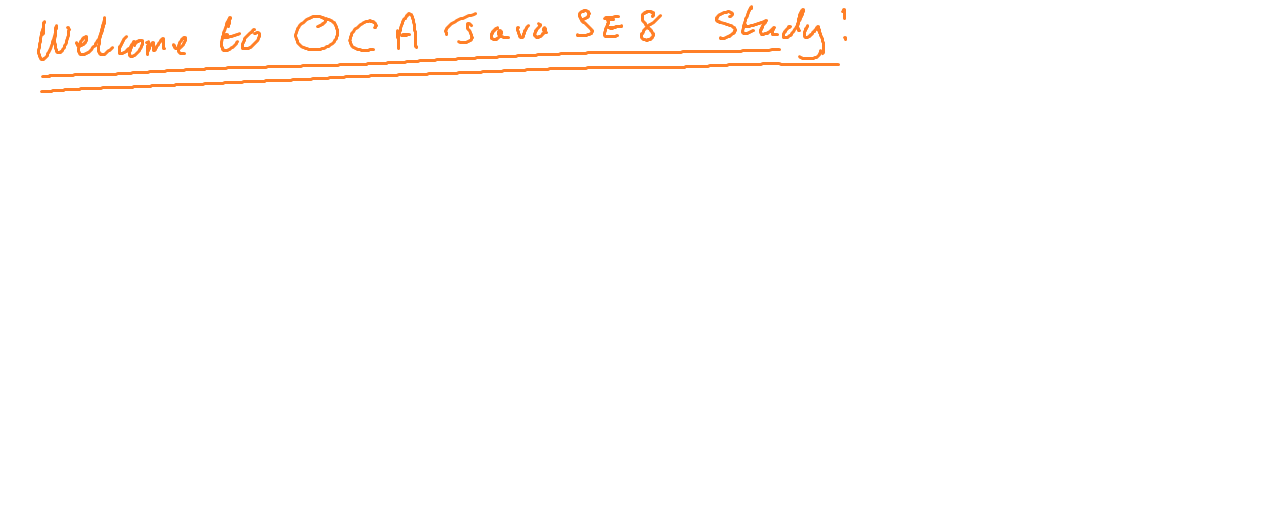 Welcome to OCA Java SE8 Study!